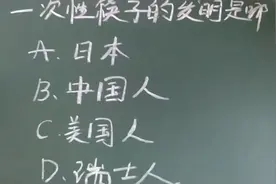 一次性筷子的发明是哪
A.日本
B.中国人
C.美国人
D.瑞士人